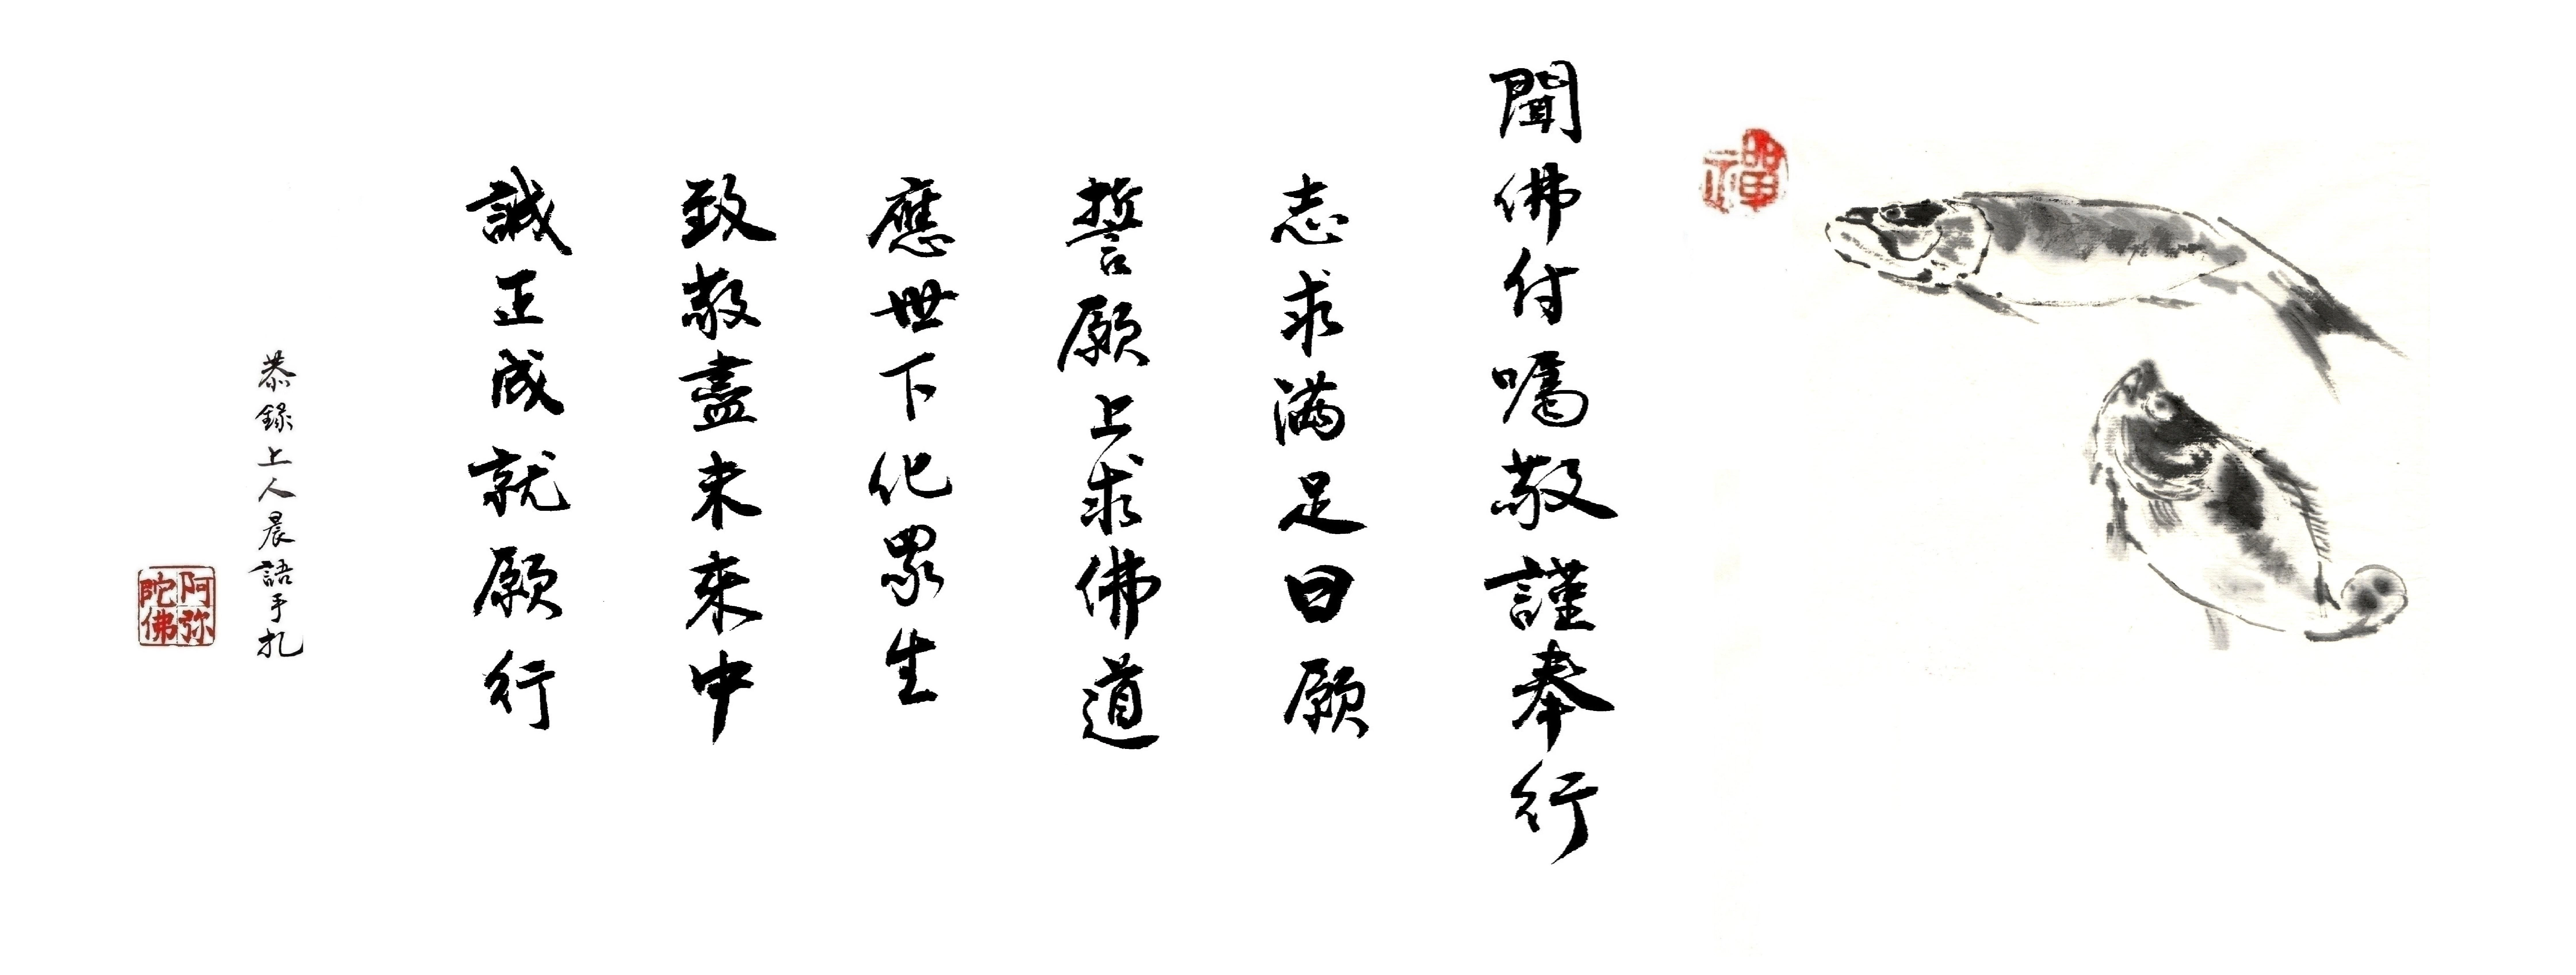 禪
聞佛付囑敬謹奉行
志求滿足日願
誓願上求佛道
應世下化眾生
致敬盡未來中
誠正成就願行
恭錄上人晨語手札
阿弥
陀佛